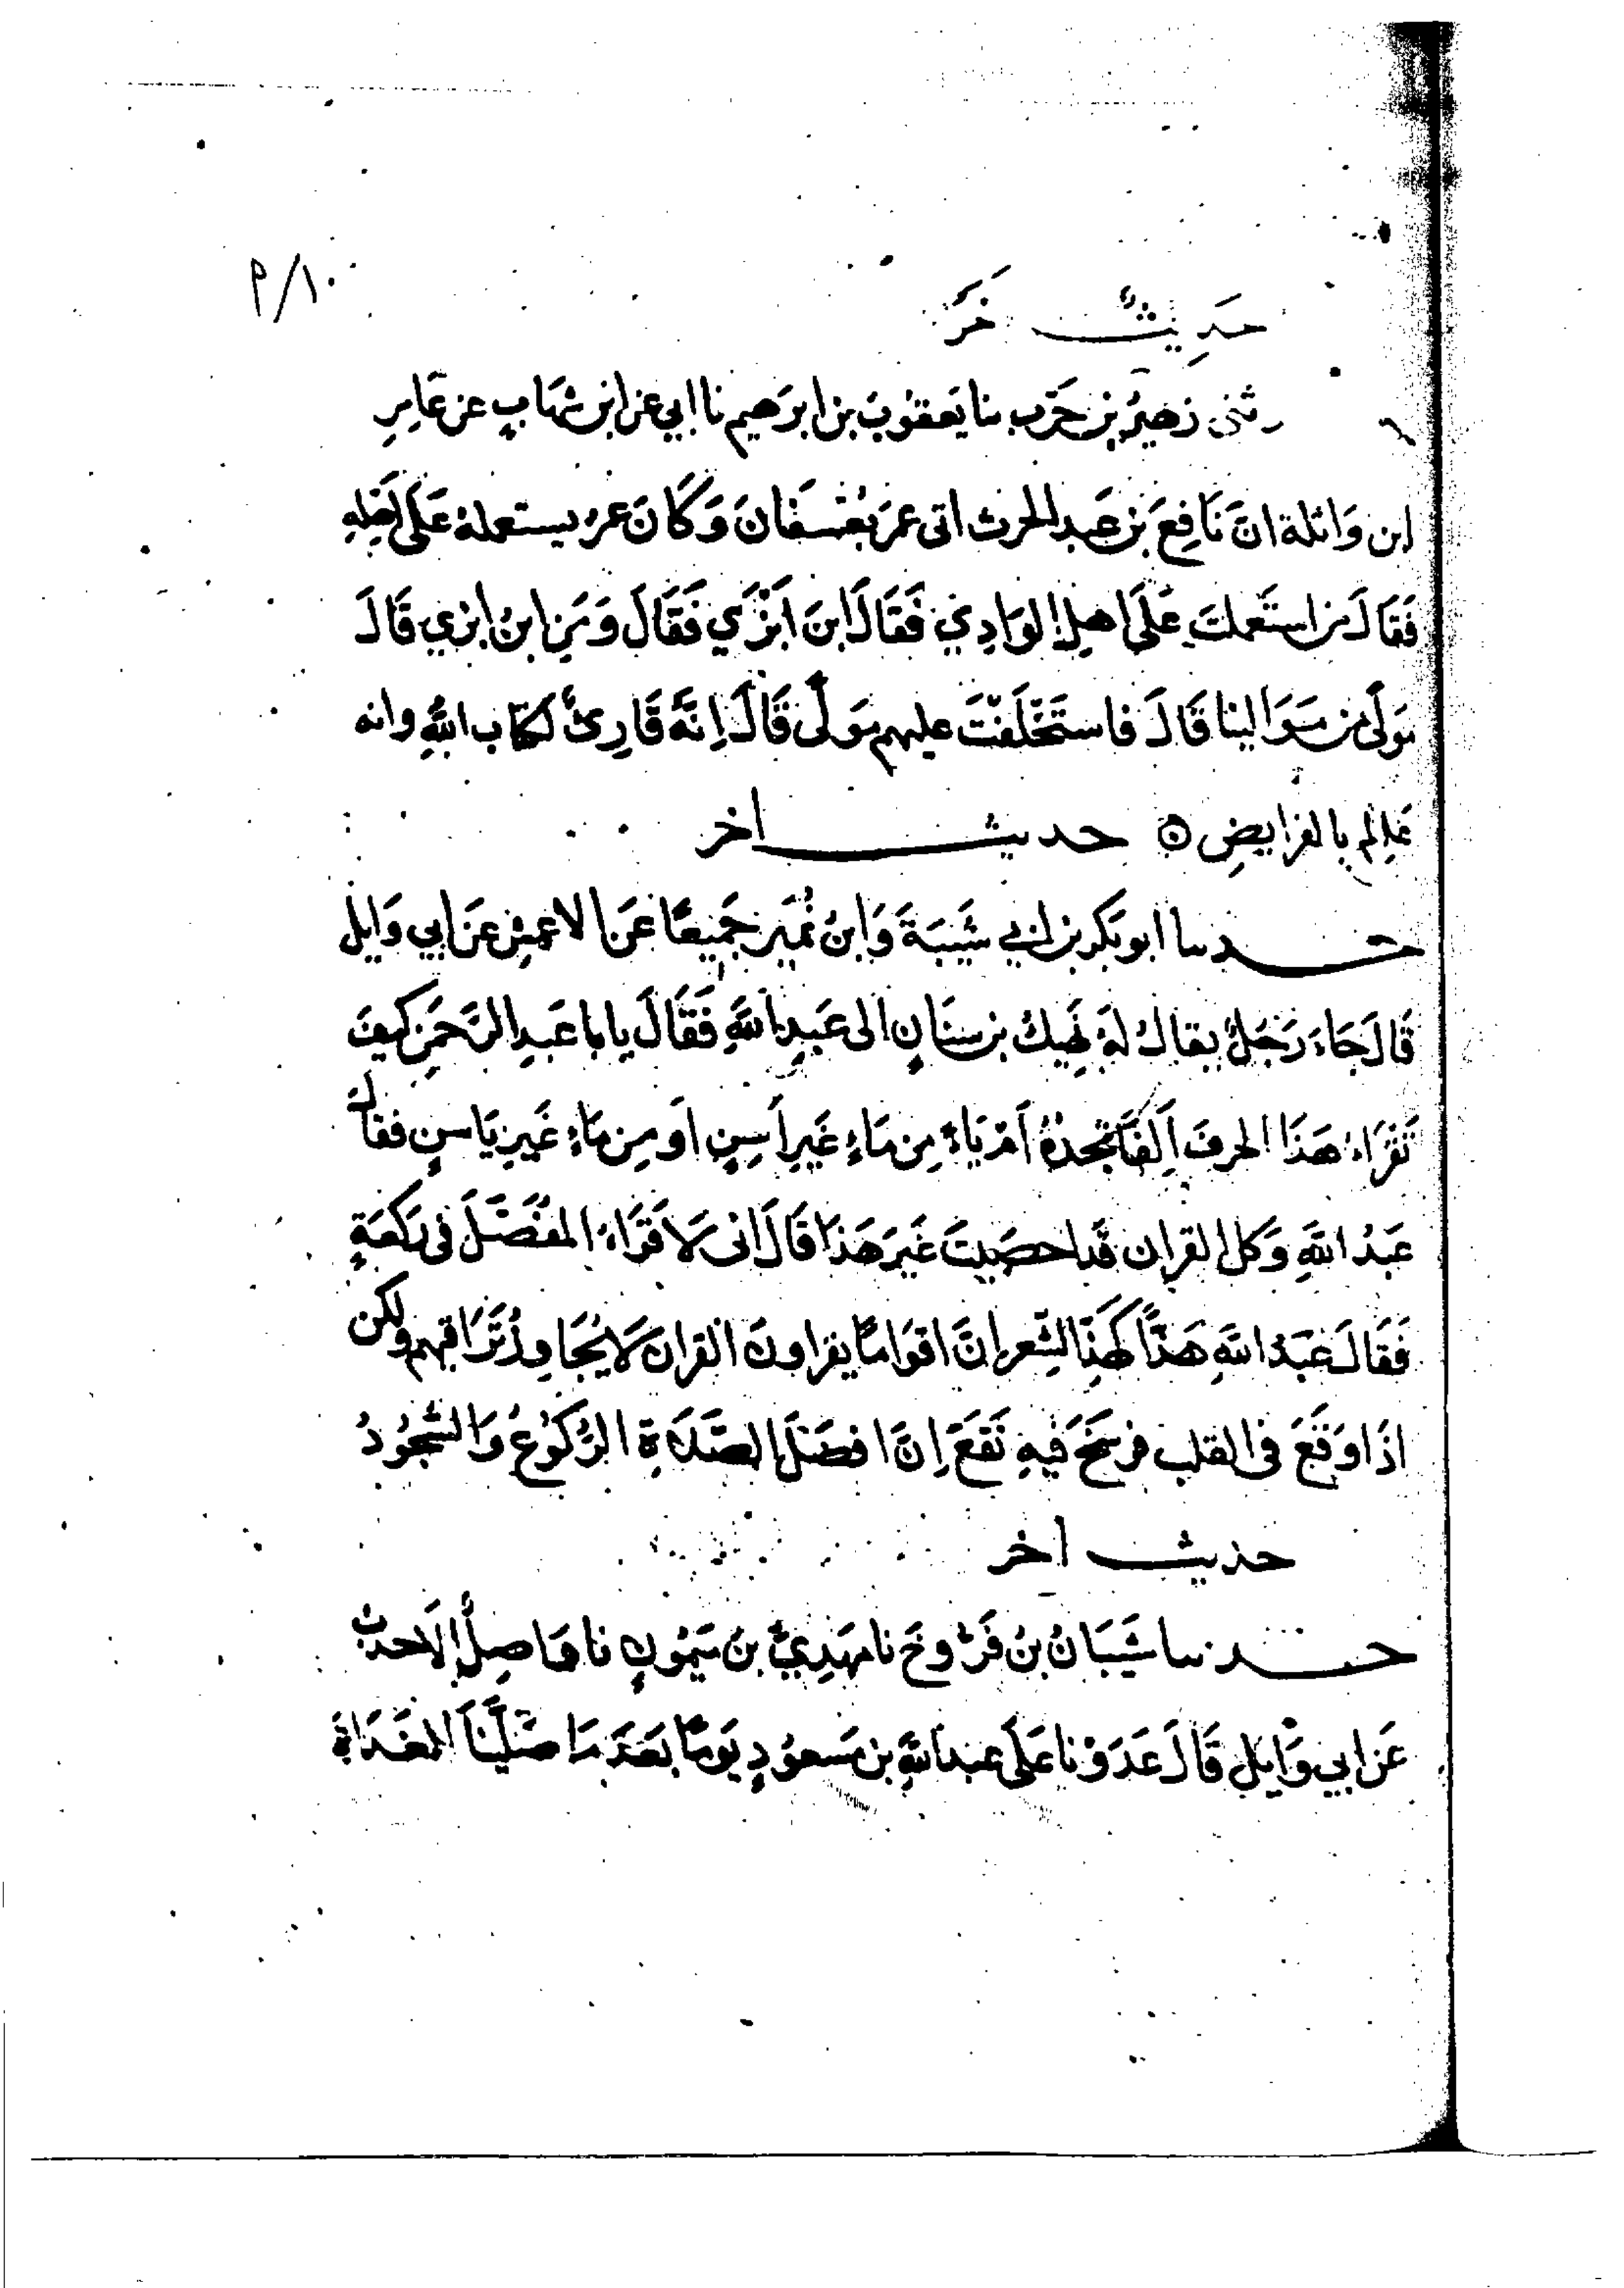 ١٠/م
حَدِيثٌ آخَرُ
حدثني زهيرُ بن حَرْب ثنا يَعقوبَ بن ابرَهيم نا ابي عن ابن شِهَابٍ عن عَامِرِ
ابن وَاثلة انَّ نَافِعَ بَن عَبد الحرث اتى عمرَ بعُسفَانَ وَكَانَ عمر يستعمله عَلَى اهله
فَقَالَ من استَعملتَ عَلَى اهلِ الوَادِي فَقَالَ ابنَ ابْزَي فَقَالَ وَمَنِ ابنُ ابزي قَالَ
مَولًى من مَوَالينا قَالَ فاستَخْلَفْتَ عليهم مَولًى قَالَ اِنَّه قَارِئٌ لكتاب اللهِ وانه
عَالِم بالفرايضِ ۞ حديث اخر
حدثنا ابو بَكر بن ابي شَيبَةَ وَابنُ نُمَيرٍ جَميعًا عَن الاعمشِ عَن ابي وَايل
قَالَ جَاءَ رَجُلٌ يقالُ لَهُ نَهِيكُ بن سنَانٍ الى عَبدِ اللهِ فَقَالَ يابا عَبدِ الرَّحمَنِ كيفَ
تَقرَاءُ هَذَا الحرفَ اَلِفًا تجدهُ اَمْ يَاءً مِن مَاءٍ غَيرِ اَسِنٍ اَو مِن مَاءٍ غَيرِ يَاسنٍ فقالَ
عَبدُ اللهِ وَكل القران قَد احصَيتَ غَيرَ هَذَا قَالَ انى لَاَقرَاءُ المُفَصَّلَ فى رَكعَةٍ
فَقَالَ عَبدُ اللهِ هَذًّا كهَذِّ الشِّعر انَّ اقوَامًا يقراونَ القرانَ لَا يُجَاوِزُ تَرَاقيهم ولكن
اذَا وَقَعَ فى القلب فرسَخَ فيهِ نَفَعَ اِنَّ افضَلَ الصَّلَاةِ الرُّكُوعُ وَالسُّجُودُ
حديث اخر
حدثنا شَيبَانُ بنُ فَرُّوخَ نا مَهدِيُّ بنُ مَيمُونٍ نا وَاصِلُ الاَحدبُ
عَن ابي وَايِلٍ قَالَ غدَونا عَلَى عبد اللهِ بن مَسعُودٍ يَومًا بَعدَ مَا صَلَّينَا الغَدَاةَ